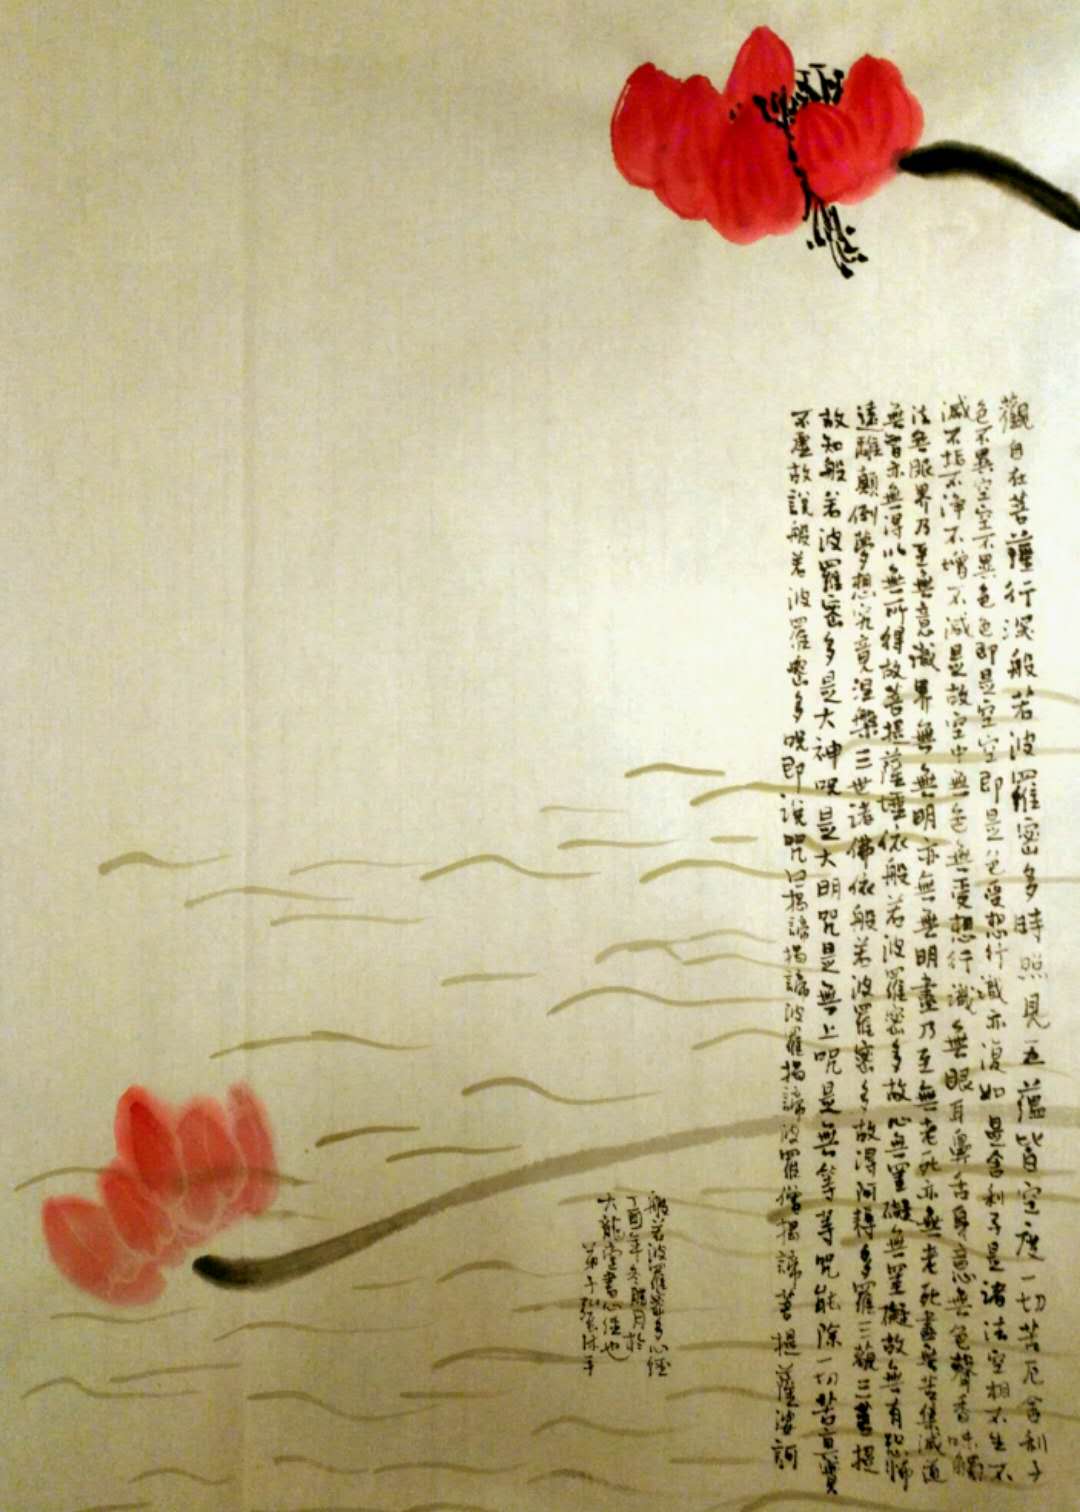 觀自在菩薩行深般若波羅密多時照見五蘊皆空度一切苦厄舍利子
色不異空空不異色色即是空空即是色受想行識亦復如是舍利子是諸法空相不生不
滅不垢不淨不增不減是故空中無色無受想行識無眼耳鼻舌身意無色聲香味觸
法無眼界乃至無意識界無無明亦無無明盡乃至無老死亦無老死盡無苦集滅道
無智亦無得以無所得故菩提薩埵依般若波羅密多故心無罣礙無罣礙故無有恐怖
遠離顛倒夢想究竟涅槃三世諸佛依般若波羅密多故得阿耨多羅三藐三菩提
故知般若波羅密多是大神咒是大明咒是無上咒是無等等咒能除一切苦真實
不虛故說般若波羅密多咒即说咒曰揭諦揭諦波羅揭諦波羅僧揭諦菩提薩婆訶
般若波羅密多心經
丁酉年冬臘月於
大龍堂書心經也
弟子